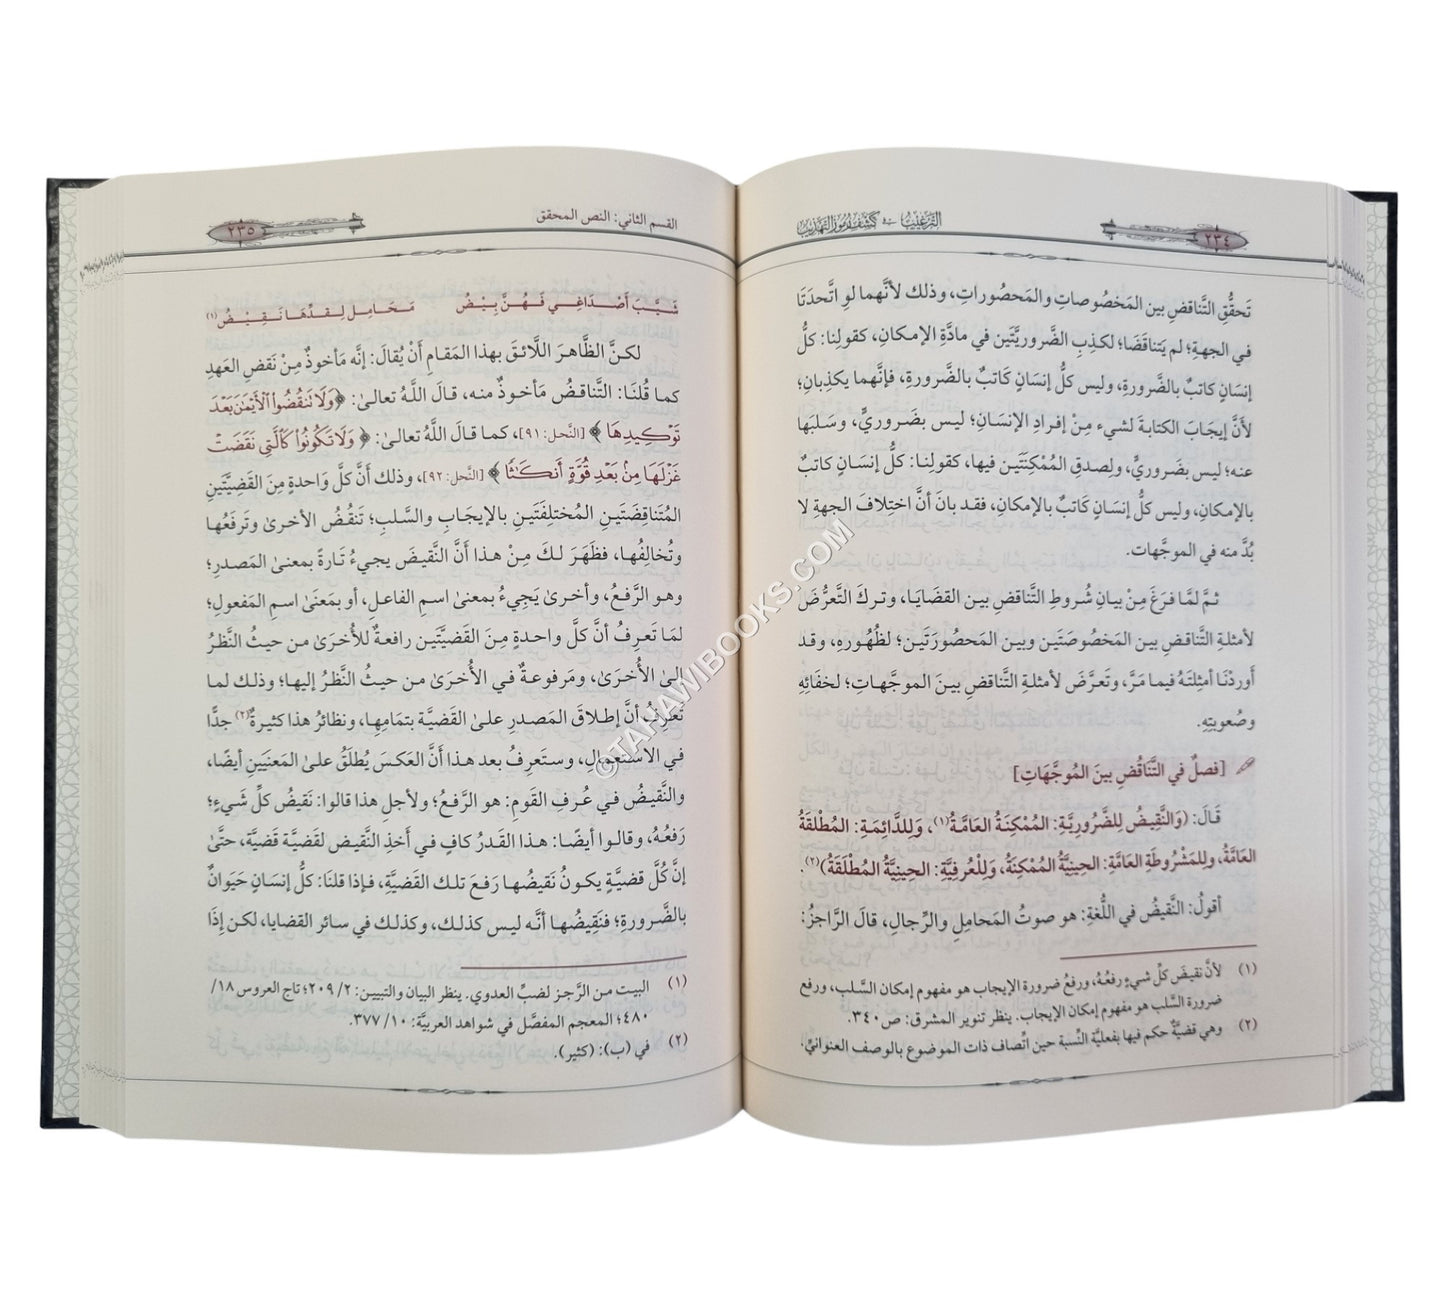 ٢٣٤
الترغيب في كشف رموز التهذيب
تَحقُّقِ التَّناقضِ بين المَخصُوصاتِ والمَحصُوراتِ، وذلك لأنَّهما لوِ اتَّحدَتَا
في الجهةِ؛ لم يَتناقَضَا؛ لكذِبِ الضَّروريَّتَين في مادَّةِ الإمكانِ، كقولِنا: كلُّ
إنسَانٍ كاتبٌ بالضَّرورةِ، وليس كلُّ إنسَانٍ كَاتبٌ بالضَّرورةِ، فإنَّهما يكذِبانِ؛
لأنَّ إيجَابَ الكتابةِ لشيء مِنْ إفرادِ الإنسَانِ؛ ليس بضَروريٍّ، وسَلبَها
عنه؛ ليس بضَروريٍّ، ولِصدقِ المُمْكِنَتَين فيها، كقولِنا: كلُّ إنسَانٍ كاتبٌ
بالإمكانِ، وليس كلُّ إنسَانٍ كَاتبٌ بالإمكانِ، فقد بانَ أنَّ اختِلافَ الجهةِ لا
بُدَّ منه في الموجَّهات.
ثمَّ لمَّا فرَغَ مِنْ بيانِ شُروطِ التَّناقضِ بين القضَايَا، وتركَ التَّعرُّضَ
لأمثلةِ التَّناقضِ بين المَخصُوصَتَين وبين المَحصُورَتَين؛ لظُهُورِه، وقد
أوردْنَا أمثِلتَهُ فيما مَرَّ، وتَعرَّضَ لأمثلةِ التَّناقضِ بينَ الموجَّهاتِ؛ لخفَائِهِ
وصُعوبتِهِ.
[فصلٌ في التَّناقُضِ بينَ المُوجَّهَاتِ]
قَالَ: (وَالنَّقِيضُ لِلضَّرُورِيَّةِ: المُمْكِنَةُ العَامَّةُ(١)، وَلِلدَّائِمَةِ: المُطْلقَةُ
العَامَّةُ، وللمَشْرُوطَةِ العَامَّةِ: الحِينِيَّةُ المُمْكِنَةُ، وَلِلْعُرفِيَّةِ: الحِينِيَّةُ المُطْلَقَةُ)(٢).
أقولُ: النَّقيضُ في اللُّغةِ: هو صوتُ المَحاملِ والرِّحالِ، قالَ الرَّاجزُ:
(١) لأنَّ نقيضَ كلِّ شيءٍ رفعُهُ، ورفعُ ضرورة الإيجاب هو مفهوم إمكان السَّلب، ورفع
ضرورة السَّلب هو مفهوم إمكان الإيجاب. ينظر تنوير المشرق: ص٣٤٠.
(٢) وهي قضيَّةٌ حكم فيها بفعليَّة النِّسبة حين اتِّصاف ذات الموضوع بالوصف العنوانيِّ.
القسم الثاني: النص المحقق
٢٣٥
شَيَّبَ أَصْدَاغِي فَهُنَّ بِيْضُ مَحَامِل لِقدِّهَا نَقِيْضُ(١)
لكنَّ الظَّاهرَ اللَّائقَ بهذا المَقامِ أنْ يُقالَ: إنَّه مأخوذٌ مِنْ نَقضِ العَهدِ
كما قُلنَا: التَّناقضُ مَأخوذٌ منه، قالَ اللَّهُ تعالىٰ: ﴿وَلَا تَنقُضُوا۟ ٱلْأَيْمَٰنَ بَعْدَ
تَوْكِيدِهَا﴾ [النَّحل: ٩١]، كما قالَ اللَّهُ تعالىٰ: ﴿وَلَا تَكُونُوا۟ كَٱلَّتِى نَقَضَتْ
غَزْلَهَا مِنۢ بَعْدِ قُوَّةٍ أَنكَٰثًا﴾ [النَّحل: ٩٢]، وذلك أنَّ كلَّ وَاحدةٍ مِنَ القَضِيَّتَينِ
المُتَناقِضَتَينِ المُختلِفَتَينِ بالإيجَابِ والسَّلبِ؛ تَنقُضُ الأخرىٰ وتَرفَعُها
وتُخالِفُها، فظَهَرَ لكَ مِنْ هذا أنَّ النَّقيضَ يجيءُ تَارةً بمعنىٰ المَصدرِ؛
وهو الرَّفعُ، وأخرىٰ يَجِيءُ بمعنىٰ اسمِ الفاعلِ، أو بمَعنَىٰ اسمِ المَفعولِ؛
لمَا تَعرِفُ أنَّ كلَّ واحدةٍ مِنَ القَضيَّتَين رافعةٌ للأُخرَىٰ من حيثُ النَّظرُ
إلىٰ الأُخرَىٰ، ومَرفوعةٌ في الأُخرَىٰ من حيثُ النَّظرُ إليها؛ وذلك لما
تَعرِفُ أنَّ إطلاقَ المَصدرِ علىٰ القَضيَّة بتمَامِها، ونظائرُ هذا كثيرةٌ(٢) جدًّا
في الاستعمالِ، وستَعرِفُ بعد هذا أنَّ العَكسَ يُطلَقُ علىٰ المَعنَيَين أيضًا،
والنَّقيضُ في عُرفِ القَومِ: هو الرَّفعُ؛ ولأجلِ هذا قالوا: نَقيضُ كلِّ شَيءٍ؛
رَفعُهُ، وقالوا أيضًا: هذا القَدرُ كافٍ في أخذِ النَّقيضِ لقَضيَّة قَضيَّة، حتَّىٰ
إنَّ كُلَّ قضيَّةٍ يكونُ نَقيضُها رَفعَ تلك القَضيَّةِ، فإذا قلنَا: كلُّ إنسَانٍ حَيَوانٌ
بالضَّرورةِ؛ فنَقِيضُها أنَّه ليس كذلك، وكذلك في سائرِ القضايا، لكن إذَا
(١) البيت من الرَّجز لضبِّ العدوي. ينظر البيان والتبيين: ٢/ ٢٠٩؛ تاج العروس ١٨/
٤٨٠؛ المعجم المفصَّل في شواهد العربيَّة: ١٠/ ٣٧٧.
(٢) في (ب): (كثير).
©TAHAWIBOOKS.COM